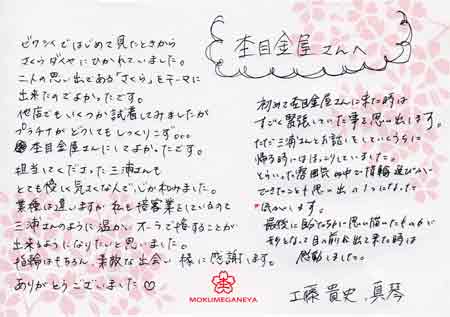 杢目金屋さんへ
ピアリングではじめて見たときから
さくらダイヤにひかれていました。
二人の思い出である「さくら」をテーマに
出来たのでよかったです。
他店でもいくつか試着してみましたが
プラチナがどうしてもしっくりこず…
杢目金屋さんにしてよかったです。
担当してくださった三浦さんも
とても優しく気さくなんで、心が和みました。
業種は違いますが私も接客業をしているので
三浦さんのように温かいオーラで接することが
出来るようになりたいと思いました。
指輪はもちろん、素敵な出会い様に感謝します。
ありがとうございました♡
初めて杢目金屋さんに来た時は
すごく緊張していた事を思い出します。
ただ三浦さんとお話をしていくうちに
帰る時にはほっこりしていました。
そういった雰囲気の中で指輪選びが
できたことも思い出の1つになった
気がします。
最後に自分たちに思い描いたものが
形となって目の前に出て来た時は
感動しました。
工藤 貴史、真琴
MOKUMEGANEYA